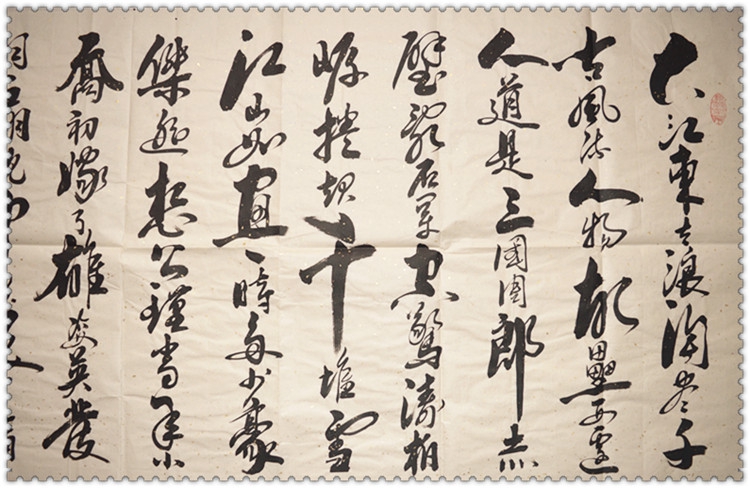 大江東去浪淘盡千
古風流人物故壘西邊
人道是三國周郎赤
壁亂石穿空驚濤拍
岸捲起千堆雪
江山如畫一時多少豪
傑遙想公瑾當年小
喬初嫁了雄姿英發